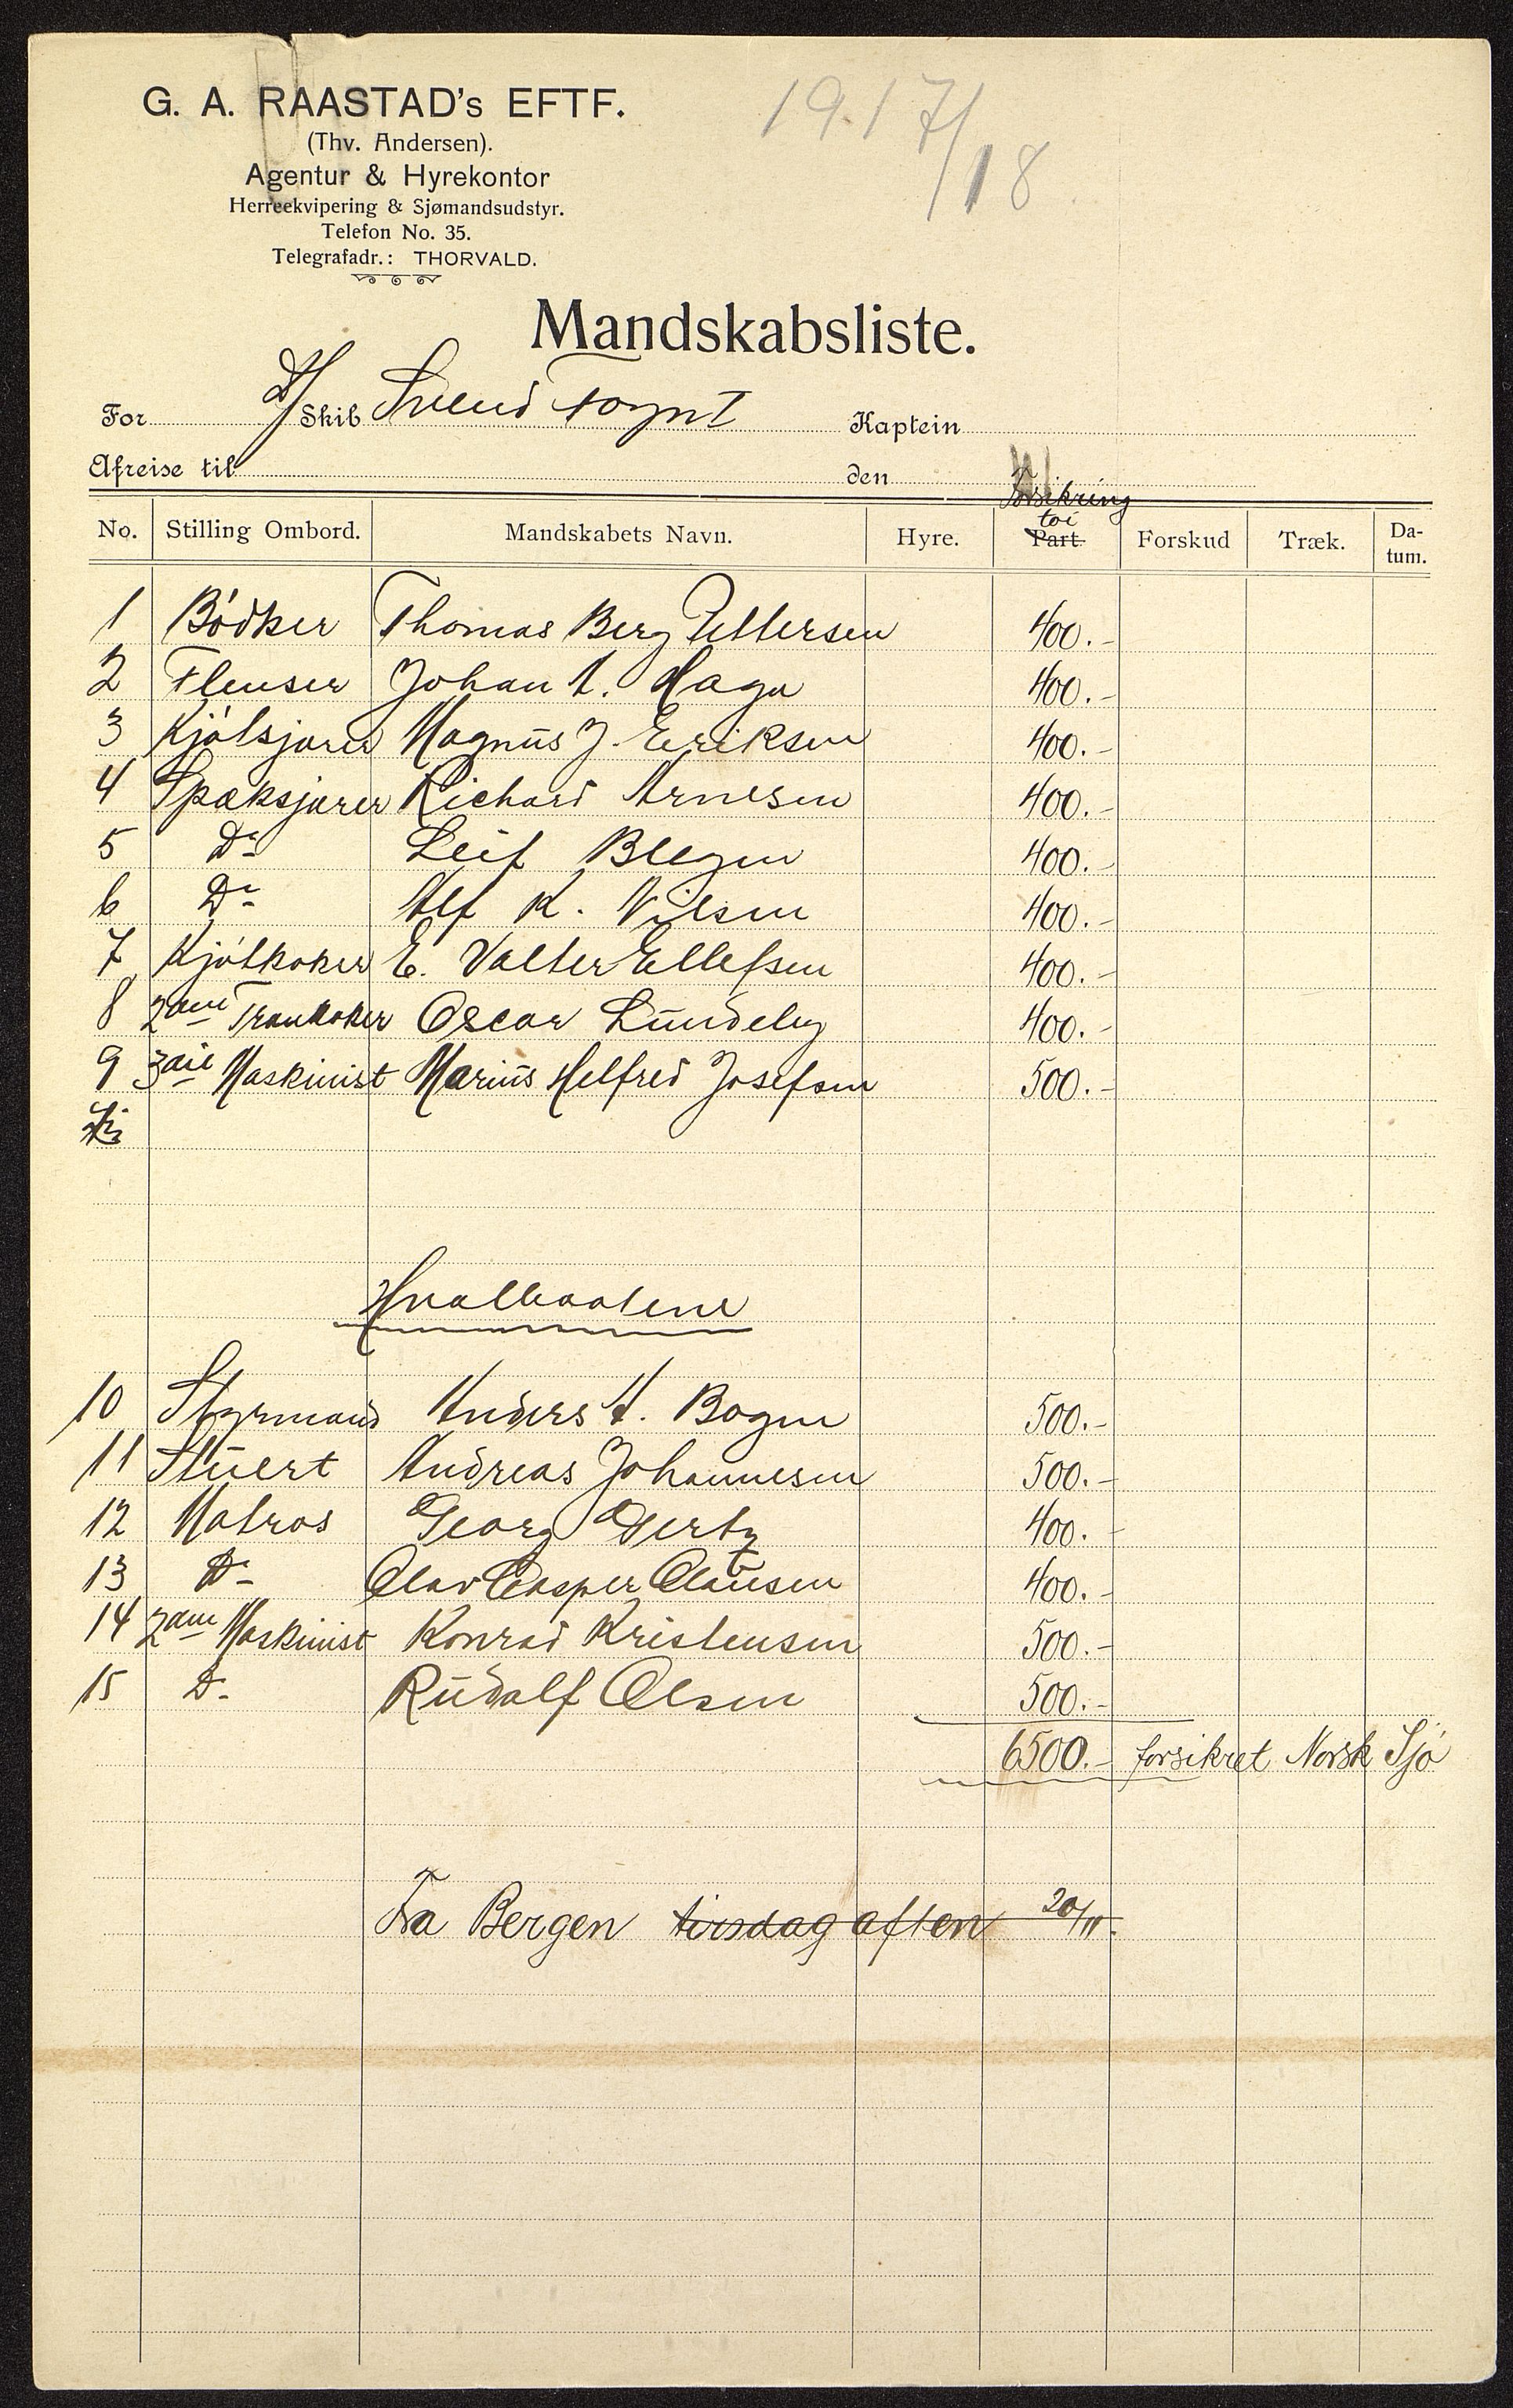 G. A. RAASTAD's EFTF.
(Thv. Andersen).
Agentur & Hyrekontor
Herreekvipering & Sjømandsudstyr.
Telefon No. 35.
Telegrafadr.: THORVALD.
1917/18
Mandskabsliste.
For D/Skib Svend Foyn I Kaptein
Afreise til den
Forsikring
No. Stilling Ombord. Mandskabets Navn. Hyre. toi Part. Forskud Træk. Da-tum.
1 Bödker Thomas Berg Pettersen 400.-
2 Flenser Johan A. Haga 400.-
3 Kjötsjærer Magnus J. Eriksen 400.-
4 Spæksjærer Richard Arnesen 400.-
5 Do Leif Blegen 400.-
6 Do Alf K. Nilsen 400.-
7 Kjötkoker E. Valter Ellefsen 400.-
8 2den Trankoker Oscar Lundeby 400.-
9 3die Maskinist Marius Helfred Josefsen 500.-
Hvalbaatene
10 Styrmand Anders A. Bogen 500.-
11 Stuert Andreas Johannesen 500.-
12 Matros Georg Gertz 400.-
13 Do Olav Casper Clausen 400.-
14 2den Maskinist Konrad Kristensen 500.-
15 Do Rudolf Olsen 500.-
6500.- forsikret Norsk Sjö
Fra Bergen tirsdag aften 20/11.